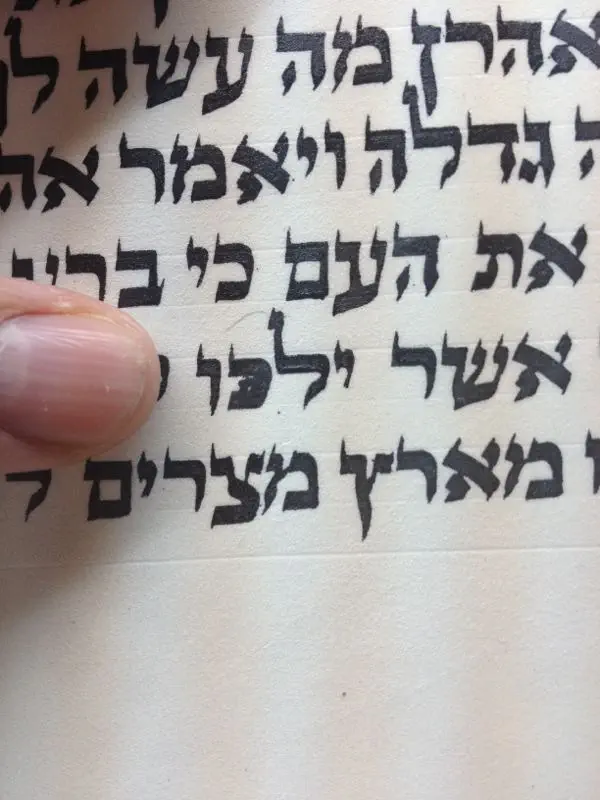 אהרן מה עשה לך
גדלה ויאמר
את העם כי
אשר ילכו
מארץ מצרים